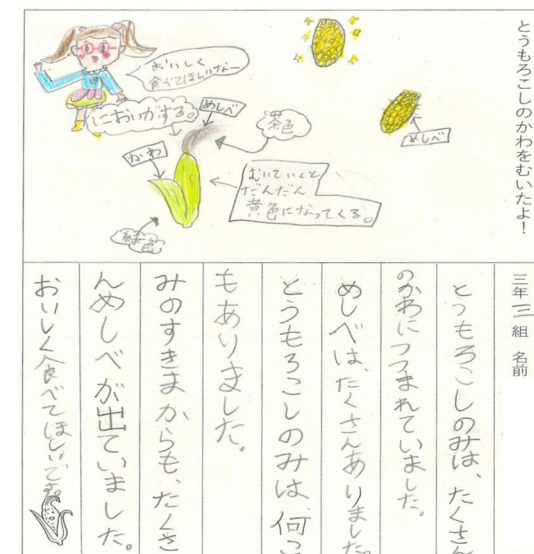 とうもろこしのかわをむいたよ！
三年三組　名前
おいしく
食べてほしいなー
においがする。
めしべ
茶色
めしべ
かわ
むいていくと
だんだん
黄色になってくる。
緑色
とうもろこしのみは、たくさん
のかわにつつまれていました。
めしべは、たくさんありました。
とうもろこしのみは、何こ
もありました。
みのすきまからも、たくさ
んめしべが出ていました。
おいしく食べてほしいです。